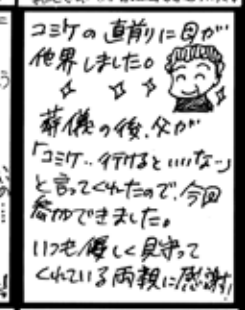 コミケの直前に母が
他界しました。
葬儀の後、父が
「コミケ‥行けるといいな‥」
と言ってくれたので、今回
参加できました。
いつも優しく見守って
くれている両親に感謝!